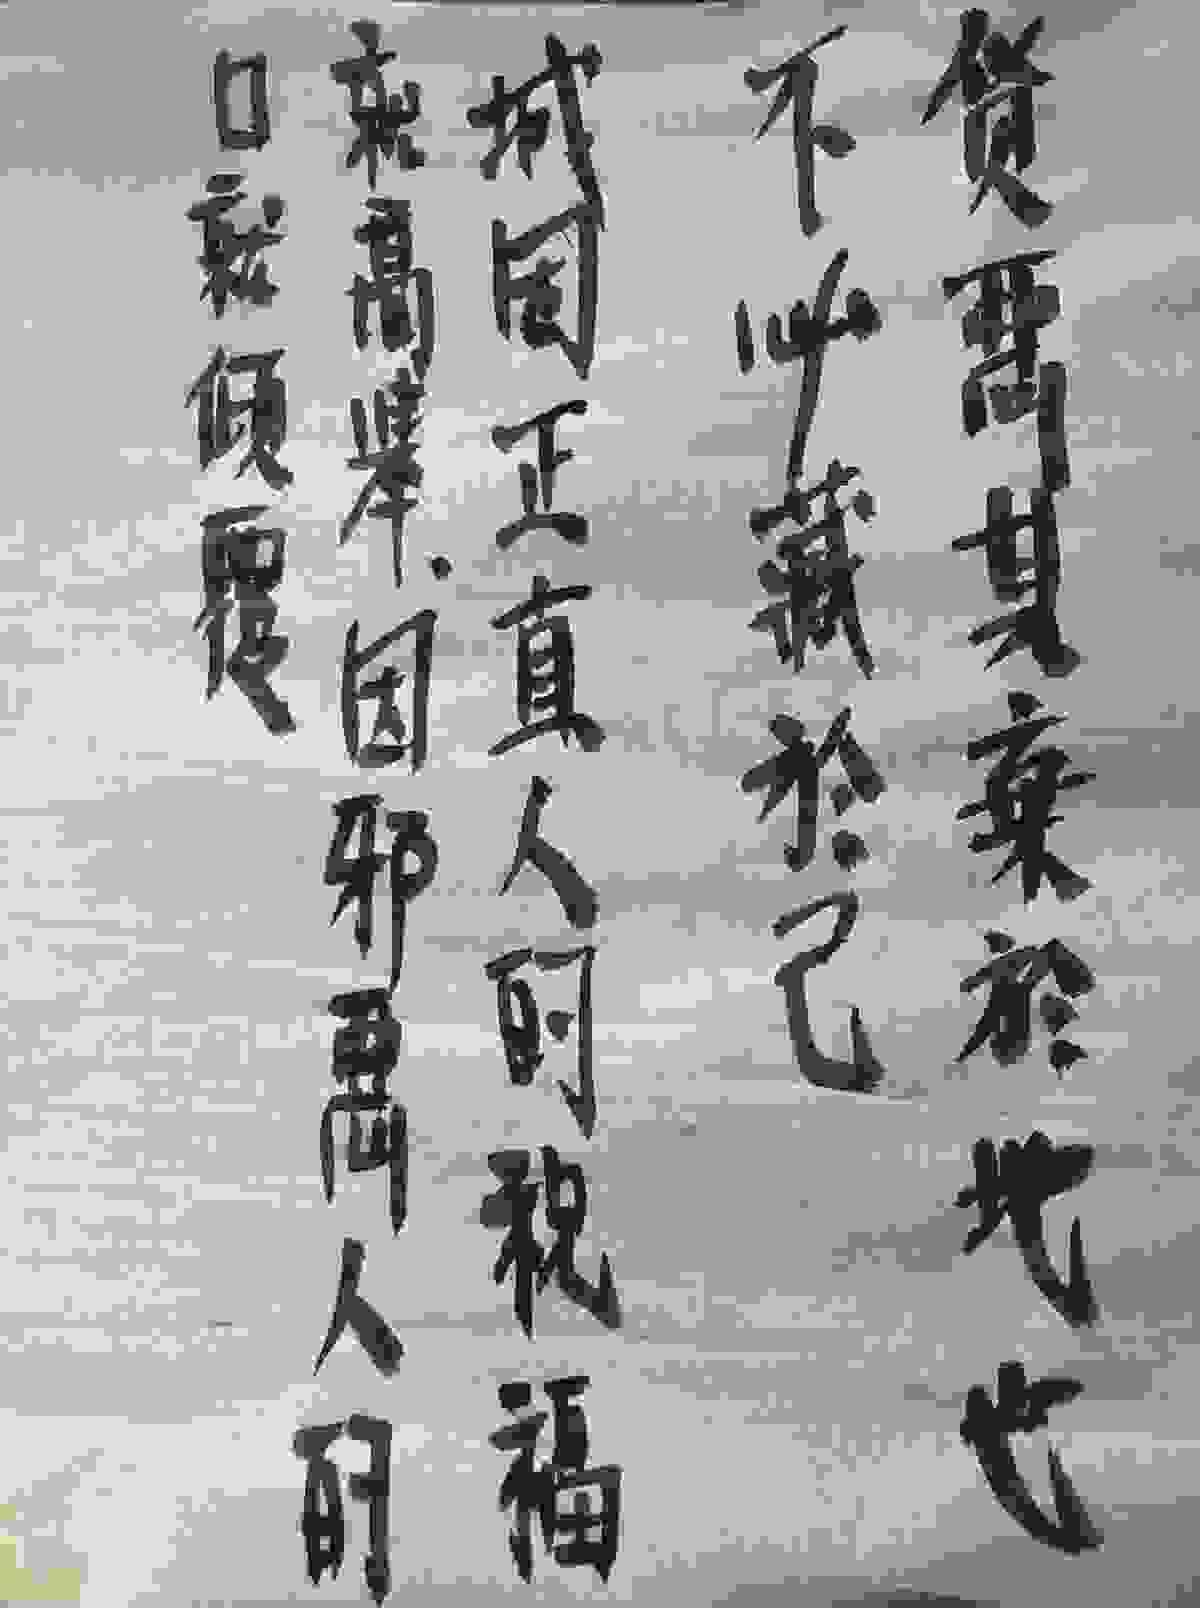 貨惡其棄於地也
不必藏於己
城因正直人的祝福
就高舉、因邪惡人的
口就傾覆